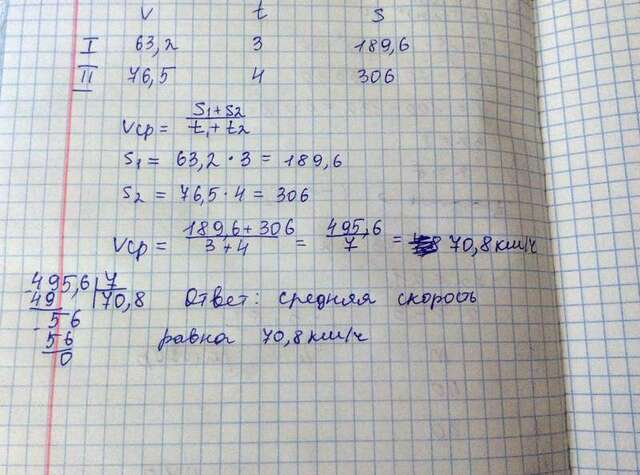 v t s
I 63,2 3 189,6
II 76,5 4 306
Vср = S1+S2 / t1+t2
S1 = 63,2 · 3 = 189,6
S2 = 76,5 · 4 = 306
Vср = 189,6+306 / 3+4 = 495,6 / 7 = 70,8 км/ч
495,6 | 7
49 | 70,8
- 56
56
0
Ответ: средняя скорость
равна 70,8 км/ч